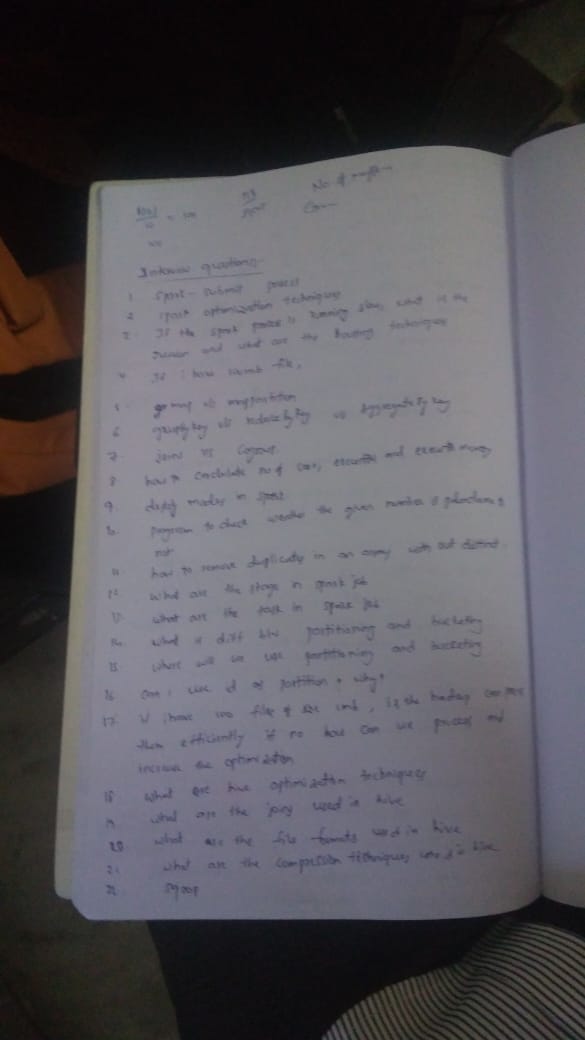 No of
Interview questions:-
1 Spark-submit process
2 Spark optimization techniques
3. If the spark process is running slow, what is the
reason and what are the techniques
4 If i have file,
5. map v/s mappartition
6 groupbykey v/s reducebykey v/s aggregatebykey
7. joins vs
8 how to calculate no of cores, executor and executor memory
9. deploy modes in spark
10. program to check weather the given number is palindrome or
not
11 how to remove duplicates in an array with out distinct.
12 what are the stage in spark job
13 what are the task in spark job
14. what is diff b/w partitioning and bucketing
15. where will we use partitioning and bucketing
16 Can i use id as partition & why?
17. If i have 100 files of size 1mb, is the hadoop can
them efficiently if no how can we process and
increase the optimization
18 what are hive optimization techniques
19 what are the used in hive
20 what are the file formats used in hive
21 what are the compression techniques used in hive
22 sqoop